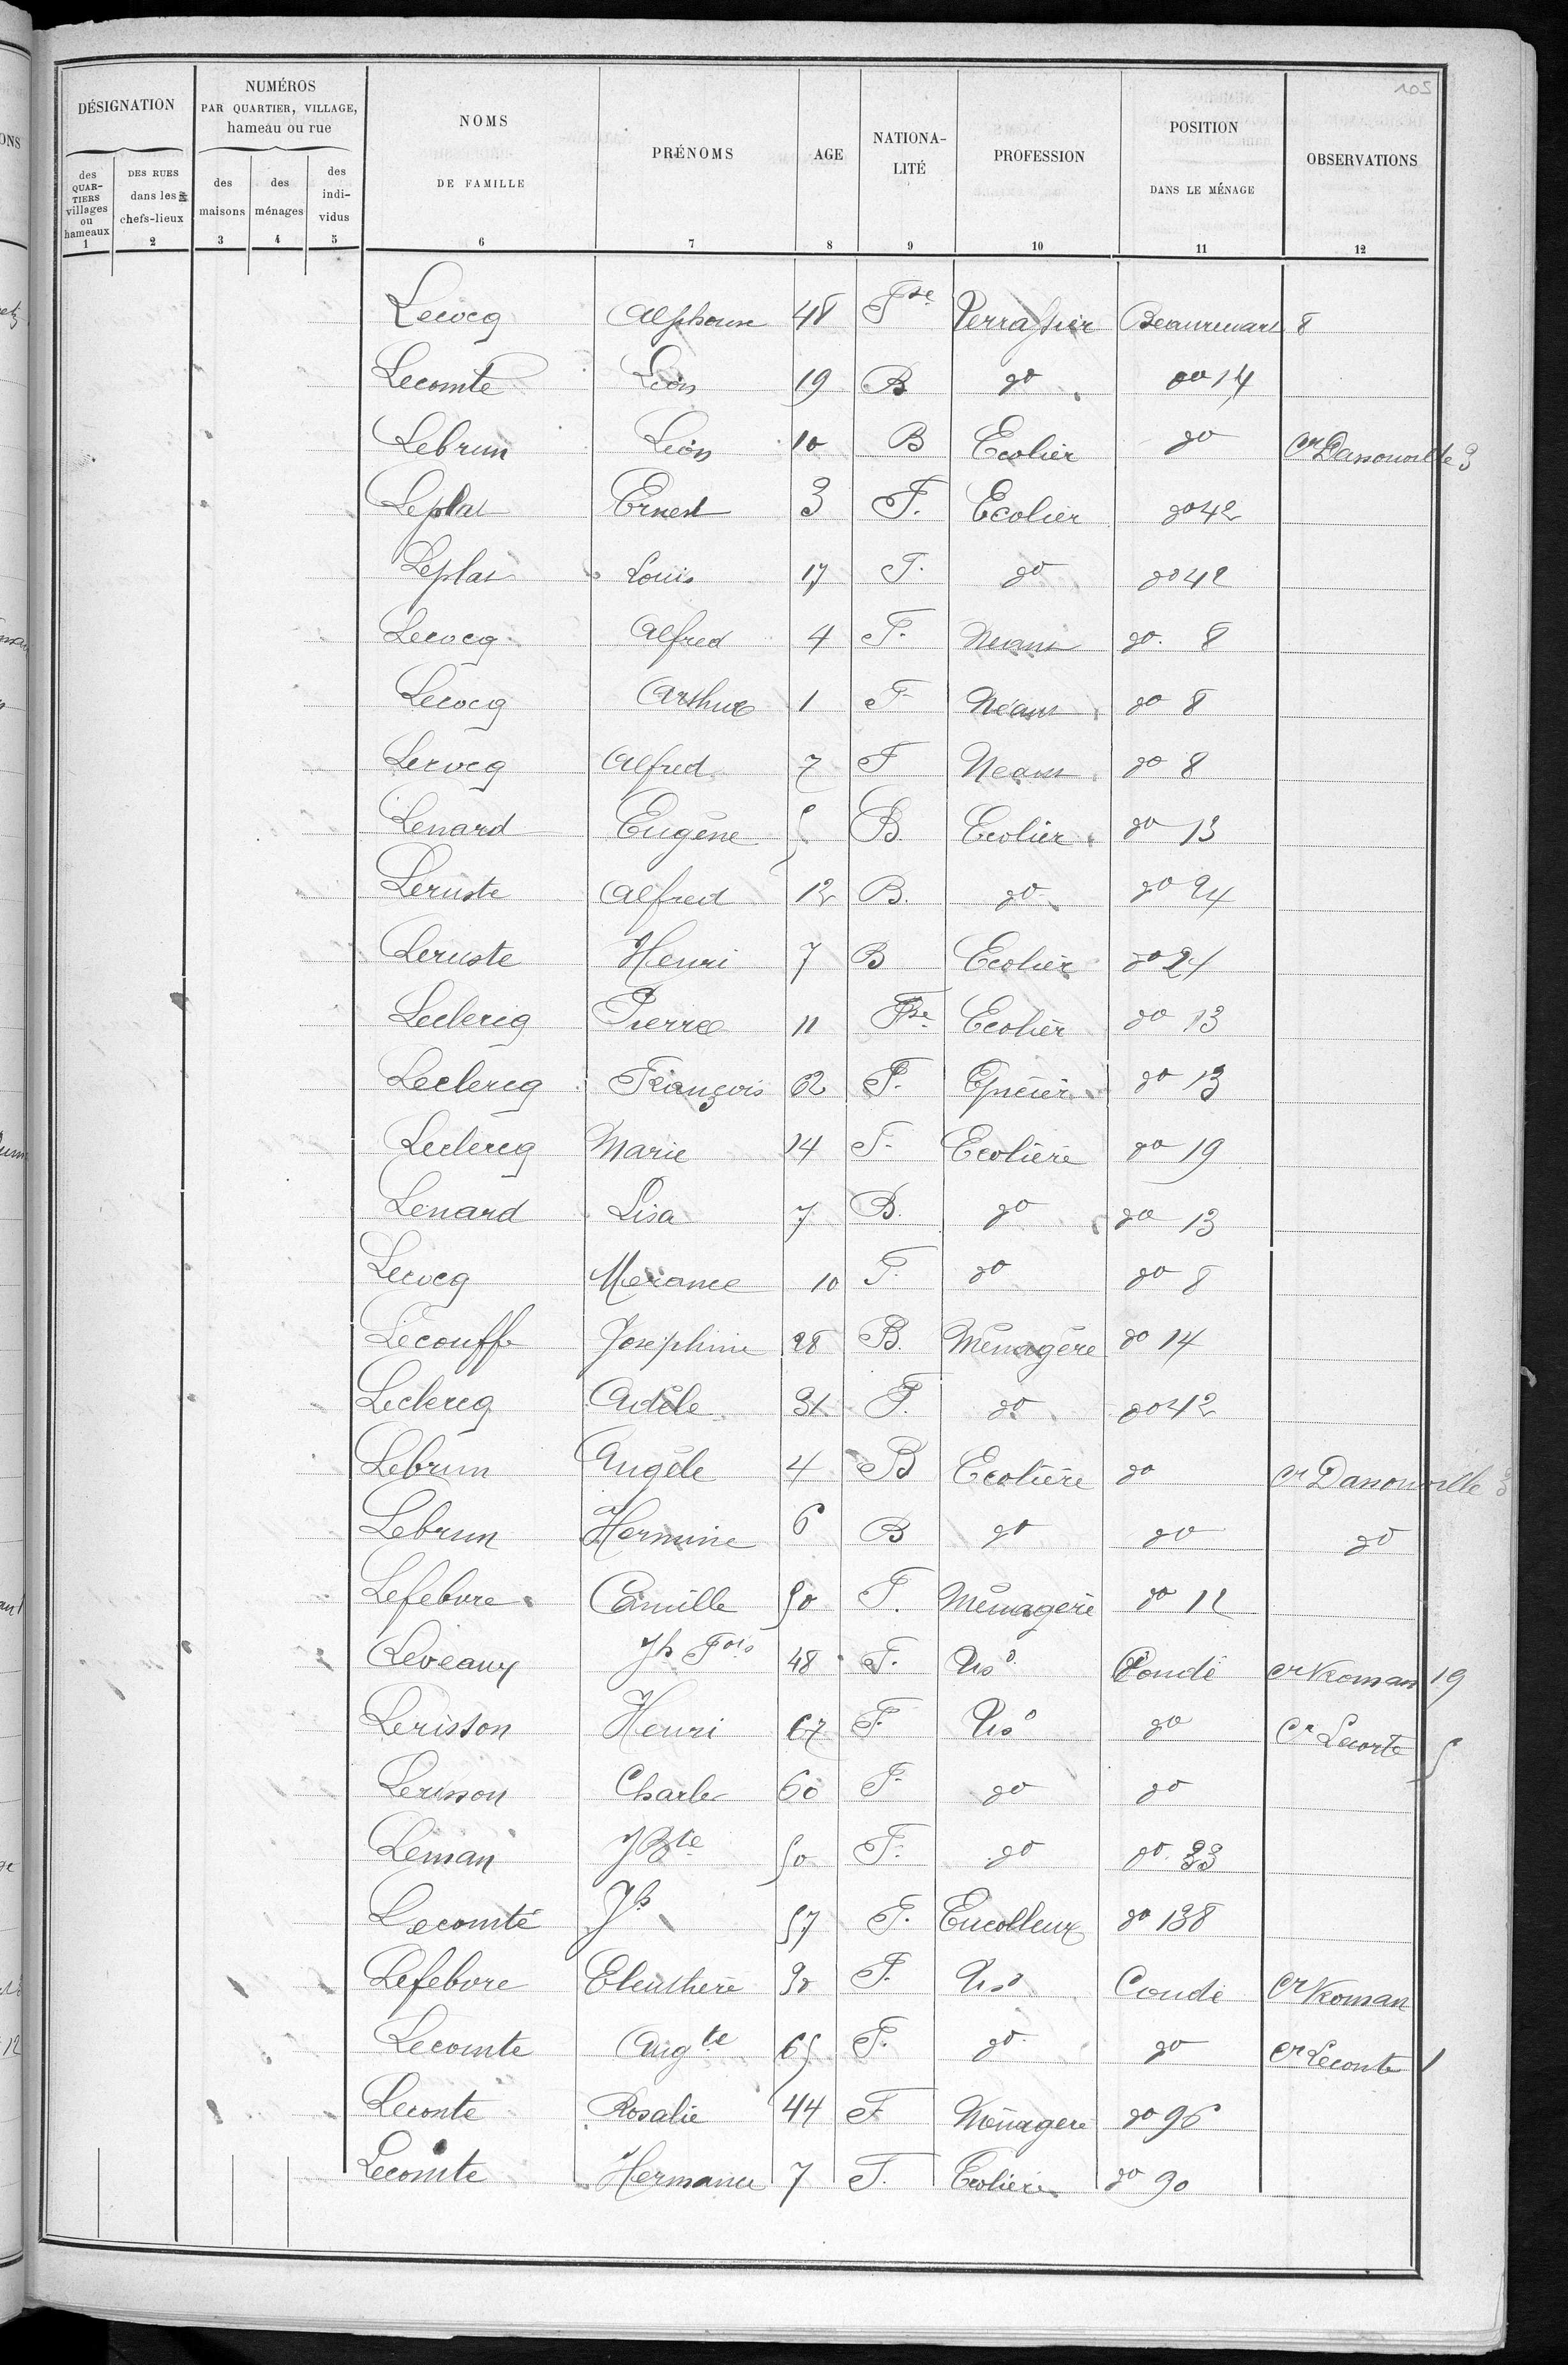 105
DÉSIGNATION
NUMÉROS
PAR QUARTIER, VILLAGE,
hameau ou rue
NOMS
DE FAMILLE
PRÉNOMS
AGE
NATIONA-
LITÉ
PROFESSION
POSITION
DANS LE MÉNAGE
OBSERVATIONS
des
QUAR-
TIERS
villages
ou
hameaux
DES RUES
dans les
chefs-lieux
des
maisons
des
ménages
des
indi-
vidus
1 2 3 4 5 6 7 8 9 10 11 12
Lecocq Alphonse 48 Fse Terrassier 8
Lecomte Léon 19 B do do 14
Lebrun Léon 10 B Ecolier do Cr 3
Leplat Ernest 3 F. Ecolier do 42
Leplat Louis 17 F. do do 42
Lecocq Alfred 4 F. Neant do 8
Lecocq Arthur 1 F Néant do 8
Lecocq Alfred 7 F Neant do 8
Lenard Eugène 5 B. Ecolier do 13
Leruste Alfred 12 B. do do 24
Leruste Henri 7 B Ecolier do 24
Leclercq Pierre 11 Fse Ecolier do 13
Leclercq François 62 F. Epicier do 13
Leclercq Marie 14 F. Ecolière do 19
Lenard Lisa 7 B. do do 13
Lecocq 10 F. do do 8
Lecouffe Joséphine 28 B. Ménagère do 14
Leclercq Adèle 31 F. do do 42
Lebrun Angèle 4 B Ecolière do Cr 3
Lebrun Hermine 6 B do do do
Lefebvre Camille 50 F. Ménagère do 12
Leveaux Jh Fois 48 F. Tisd Condé Cr 19
Lerisson Henri 67 F Tisd do Cr 5
Lerisson Charles 60 F. do do
Leman JBte 50 F. do do 33
Lecomte Jh 57 F. Encolleur do 138
Lefebvre Eleuthère 30 F. Tisd Condé Cr
Lecomte Augte 65 F. do do Cr Lecomte 1
Leconte Rosalie 44 F Ménagere do 96
Lecomte Hermance 7 F. Ecolière do 90